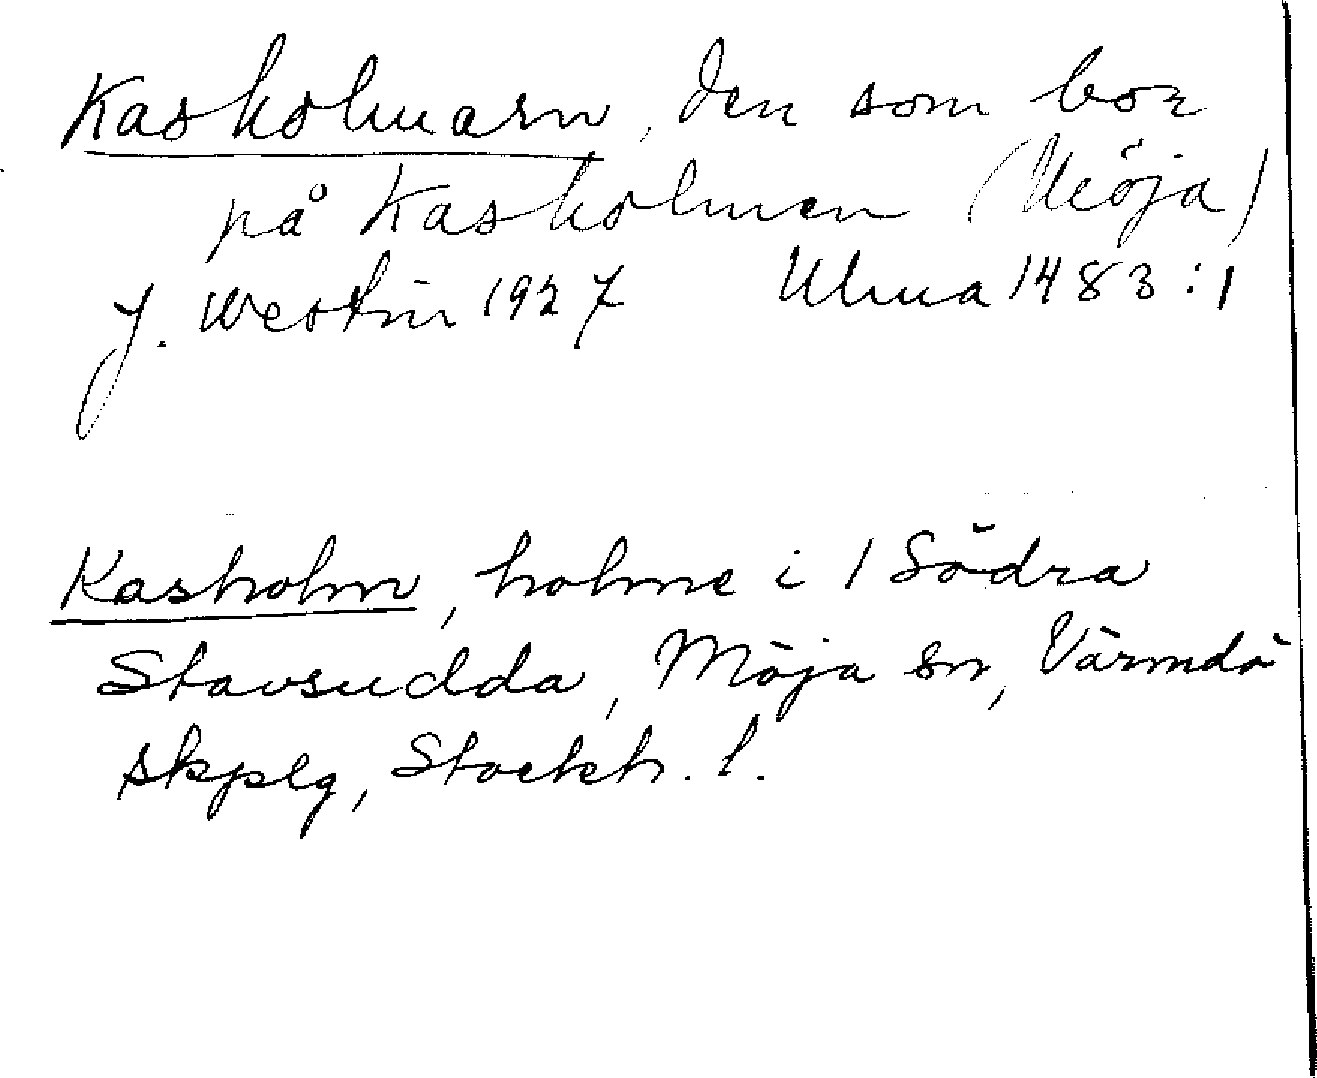 Kasholmarn, den som bor
på Kasholmen (Möja)
J. Westin 1927 Ulma 1483:1
Kasholm, holme i / Södra
Stavsudda, Möja sn, Värmdö
skplg, Stockh. l.